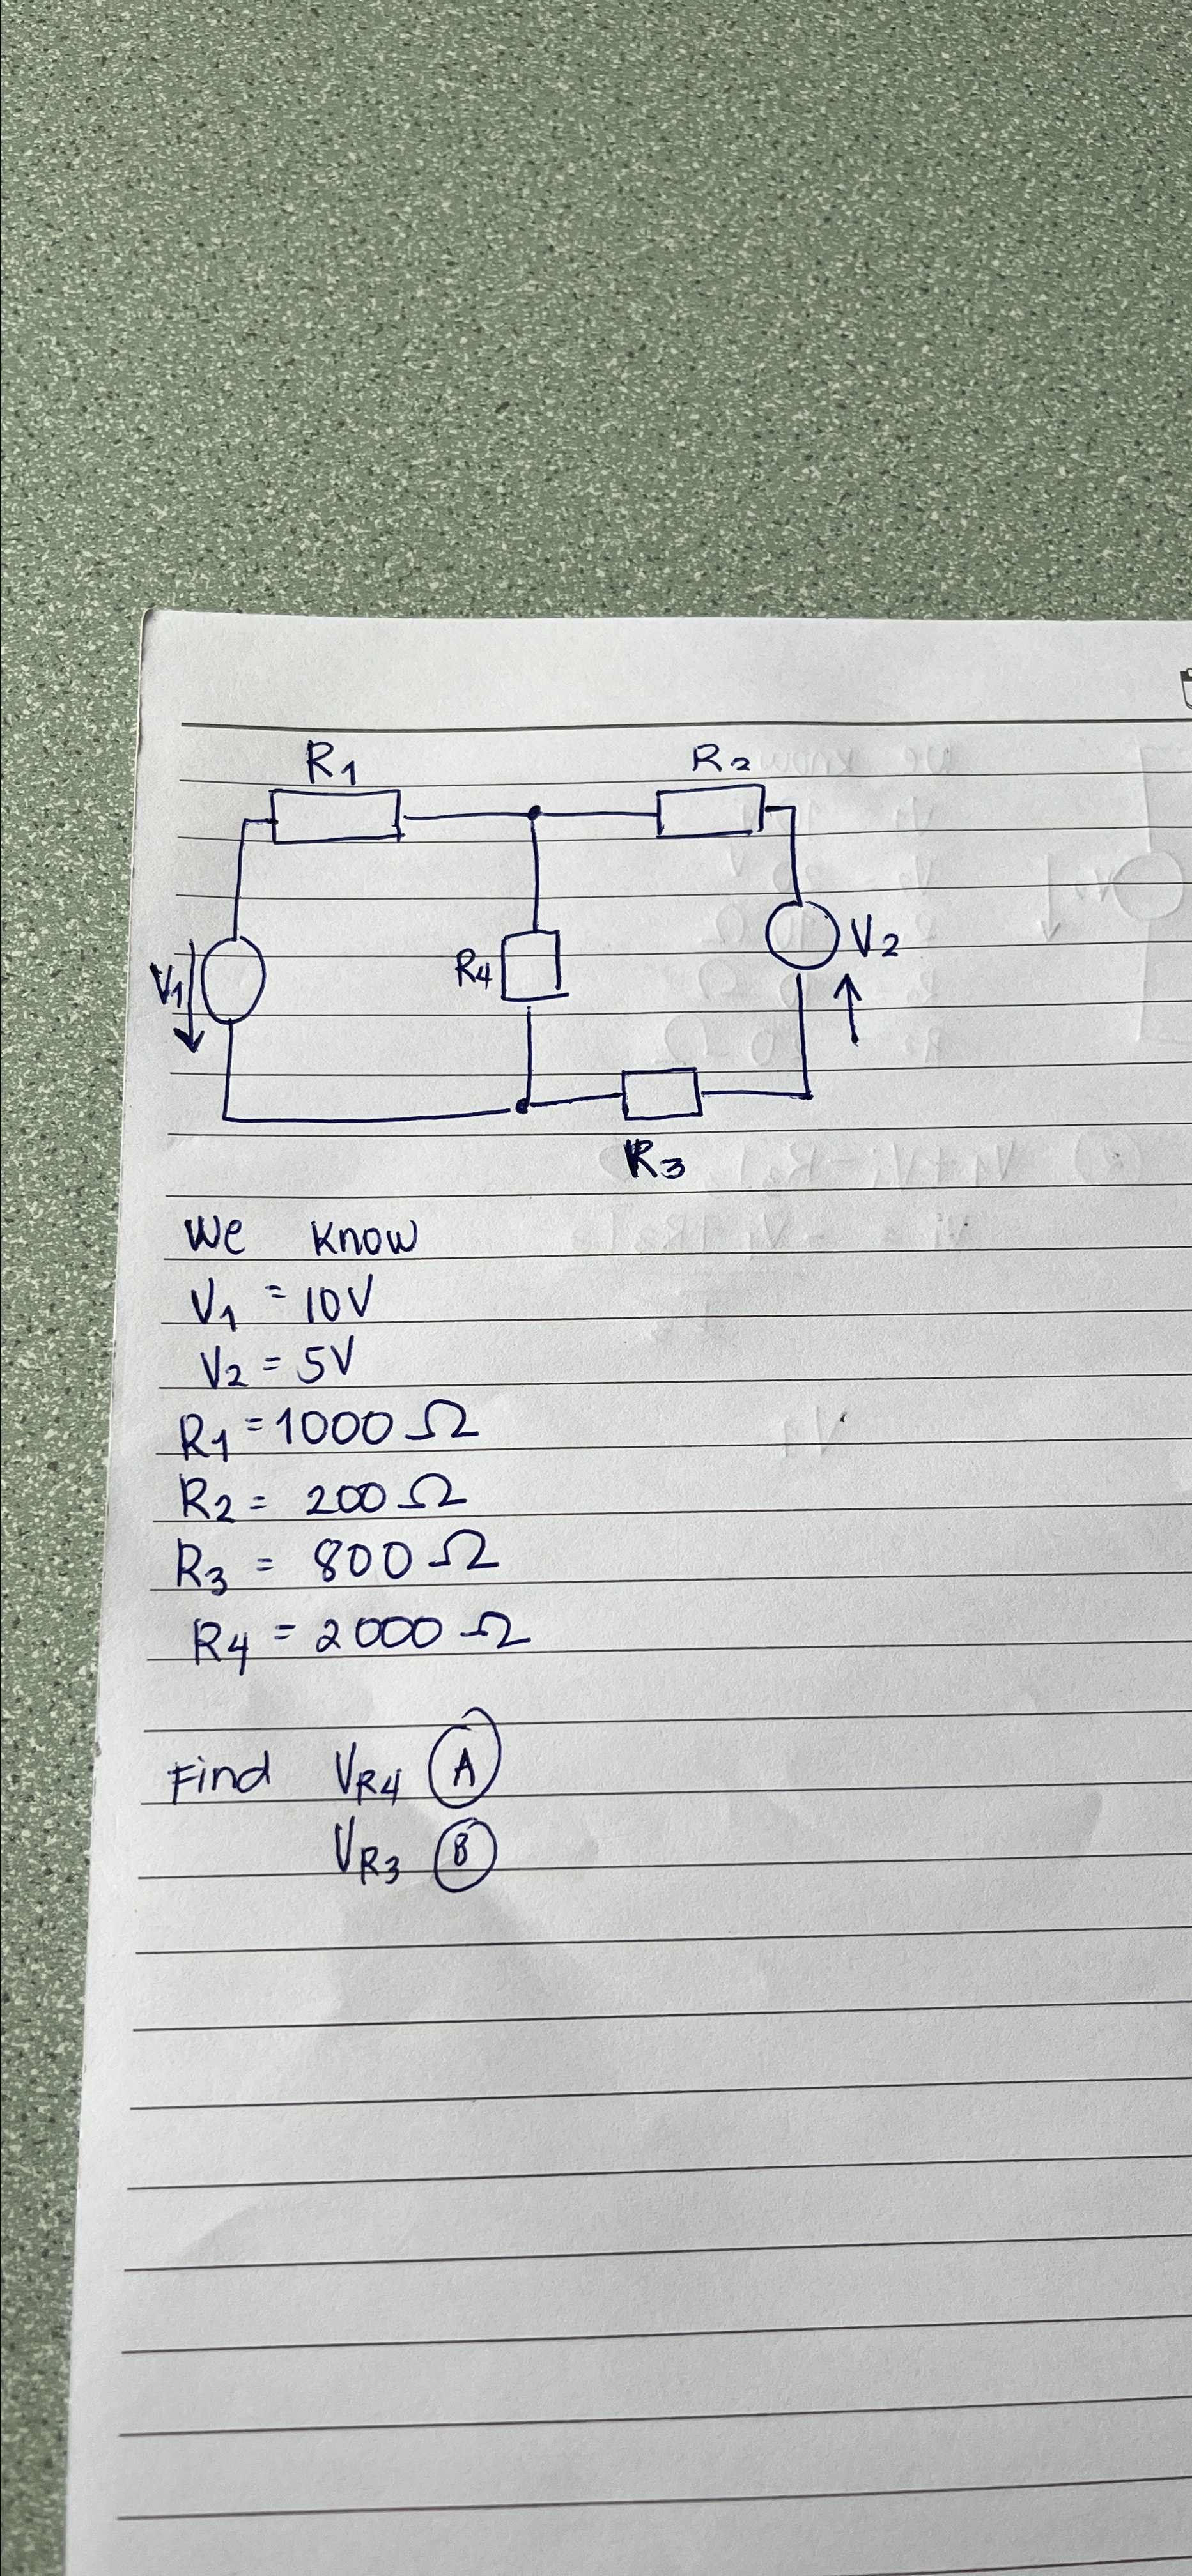 R1 R2
V1 R4 V2
R3
We know
V1 = 10V
V2 = 5V
R1 = 1000 Ω
R2 = 200 Ω
R3 = 800 Ω
R4 = 2000 Ω
Find VR4 A
VR3 B